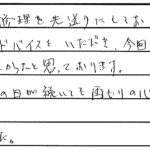 修理を先送りにしてお
ドバイスをいただき、今回
かったと思っております。
の日が続いても雨もりの心